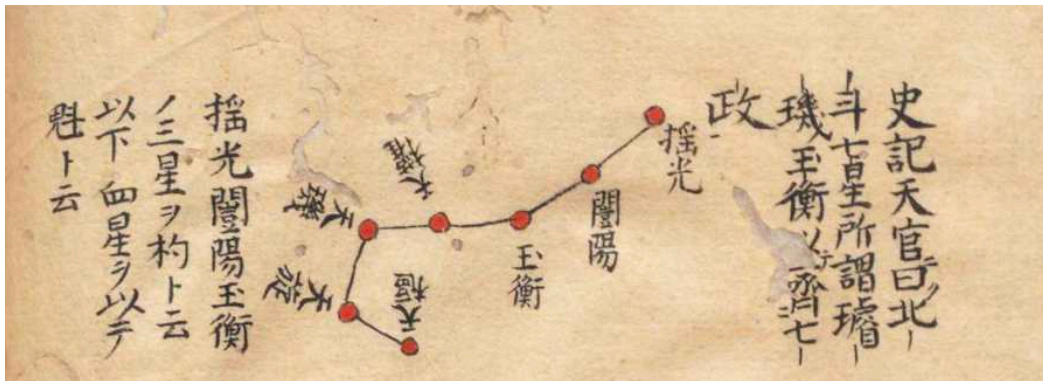 史記天官曰北
斗七星所謂璿
璣玉衡以テ齊七
政
揺光
闓陽
玉衡
天權
天璣
天旋
天樞
揺光闓陽玉衡
ノ三星ヲ杓ト云
以下四星ヲ以テ
魁ト云